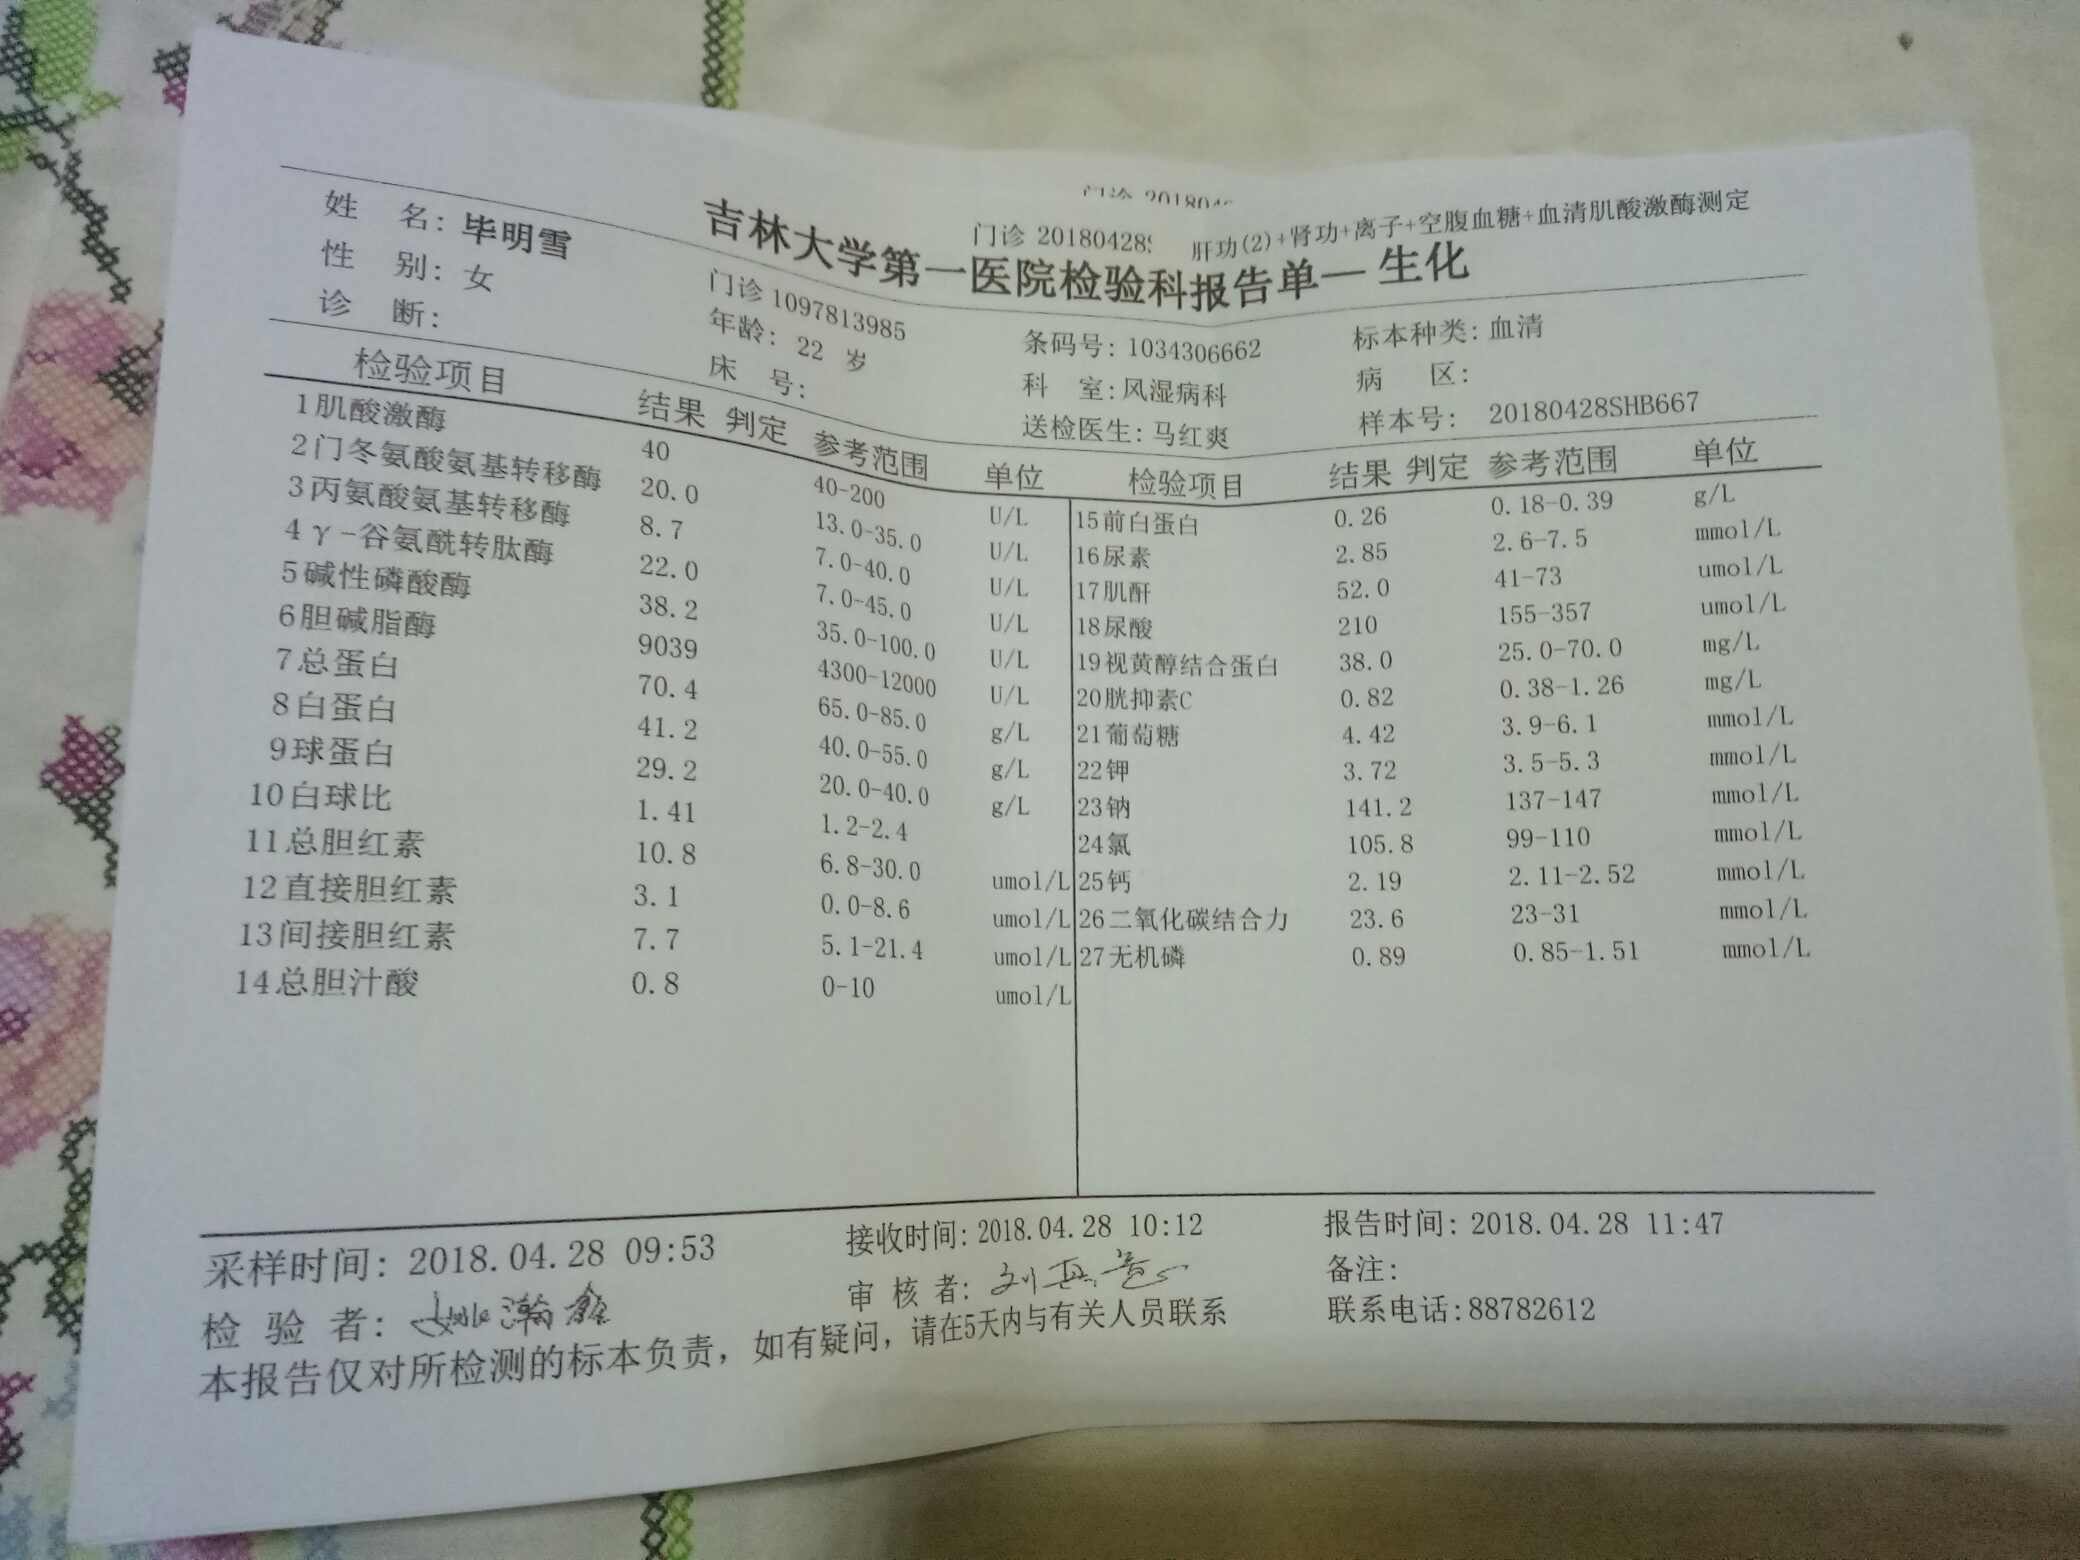 门诊 20180428 肝功(2)+肾功+离子+空腹血糖+血清肌酸激酶测定
吉林大学第一医院检验科报告单—生化
姓 名: 毕明雪 门诊 1097813985 条码号: 1034306662 标本种类: 血清
性 别: 女 年龄: 22 岁 科 室: 风湿病科 病 区:
诊 断: 床 号: 送检医生: 马红爽 样本号: 20180428SHB667
检验项目 结果 判定 参考范围 单位 检验项目 结果 判定 参考范围 单位
1肌酸激酶 40 40-200 U/L 15前白蛋白 0.26 0.18-0.39 g/L
2门冬氨酸氨基转移酶 20.0 13.0-35.0 U/L 16尿素 2.85 2.6-7.5 mmol/L
3丙氨酸氨基转移酶 8.7 7.0-40.0 U/L 17肌酐 52.0 41-73 umol/L
4γ-谷氨酰转肽酶 22.0 7.0-45.0 U/L 18尿酸 210 155-357 umol/L
5碱性磷酸酶 38.2 35.0-100.0 U/L 19视黄醇结合蛋白 38.0 25.0-70.0 mg/L
6胆碱脂酶 9039 4300-12000 U/L 20胱抑素C 0.82 0.38-1.26 mg/L
7总蛋白 70.4 65.0-85.0 g/L 21葡萄糖 4.42 3.9-6.1 mmol/L
8白蛋白 41.2 40.0-55.0 g/L 22钾 3.72 3.5-5.3 mmol/L
9球蛋白 29.2 20.0-40.0 g/L 23钠 141.2 137-147 mmol/L
10白球比 1.41 1.2-2.4 24氯 105.8 99-110 mmol/L
11总胆红素 10.8 6.8-30.0 umol/L 25钙 2.19 2.11-2.52 mmol/L
12直接胆红素 3.1 0.0-8.6 umol/L 26二氧化碳结合力 23.6 23-31 mmol/L
13间接胆红素 7.7 5.1-21.4 umol/L 27无机磷 0.89 0.85-1.51 mmol/L
14总胆汁酸 0.8 0-10 umol/L
采样时间: 2018.04.28 09:53 接收时间: 2018.04.28 10:12 报告时间: 2018.04.28 11:47
检 验 者: 审 核 者: 备注:
本报告仅对所检测的标本负责，如有疑问，请在5天内与有关人员联系 联系电话:88782612